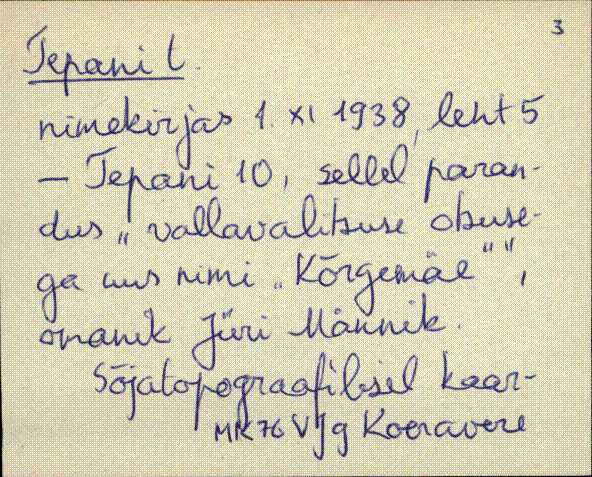 3
Tepani t.
nimekirjas 1. XI 1938, leht 5
— Tepani 10, sellel paran-
dus „vallavalitsuse otsuse-
ga uus nimi „Kõrgemäe"",
omanik Jüri Männik.
Sõjatopograafilisel kaar-
MK76 VJg Koeravere